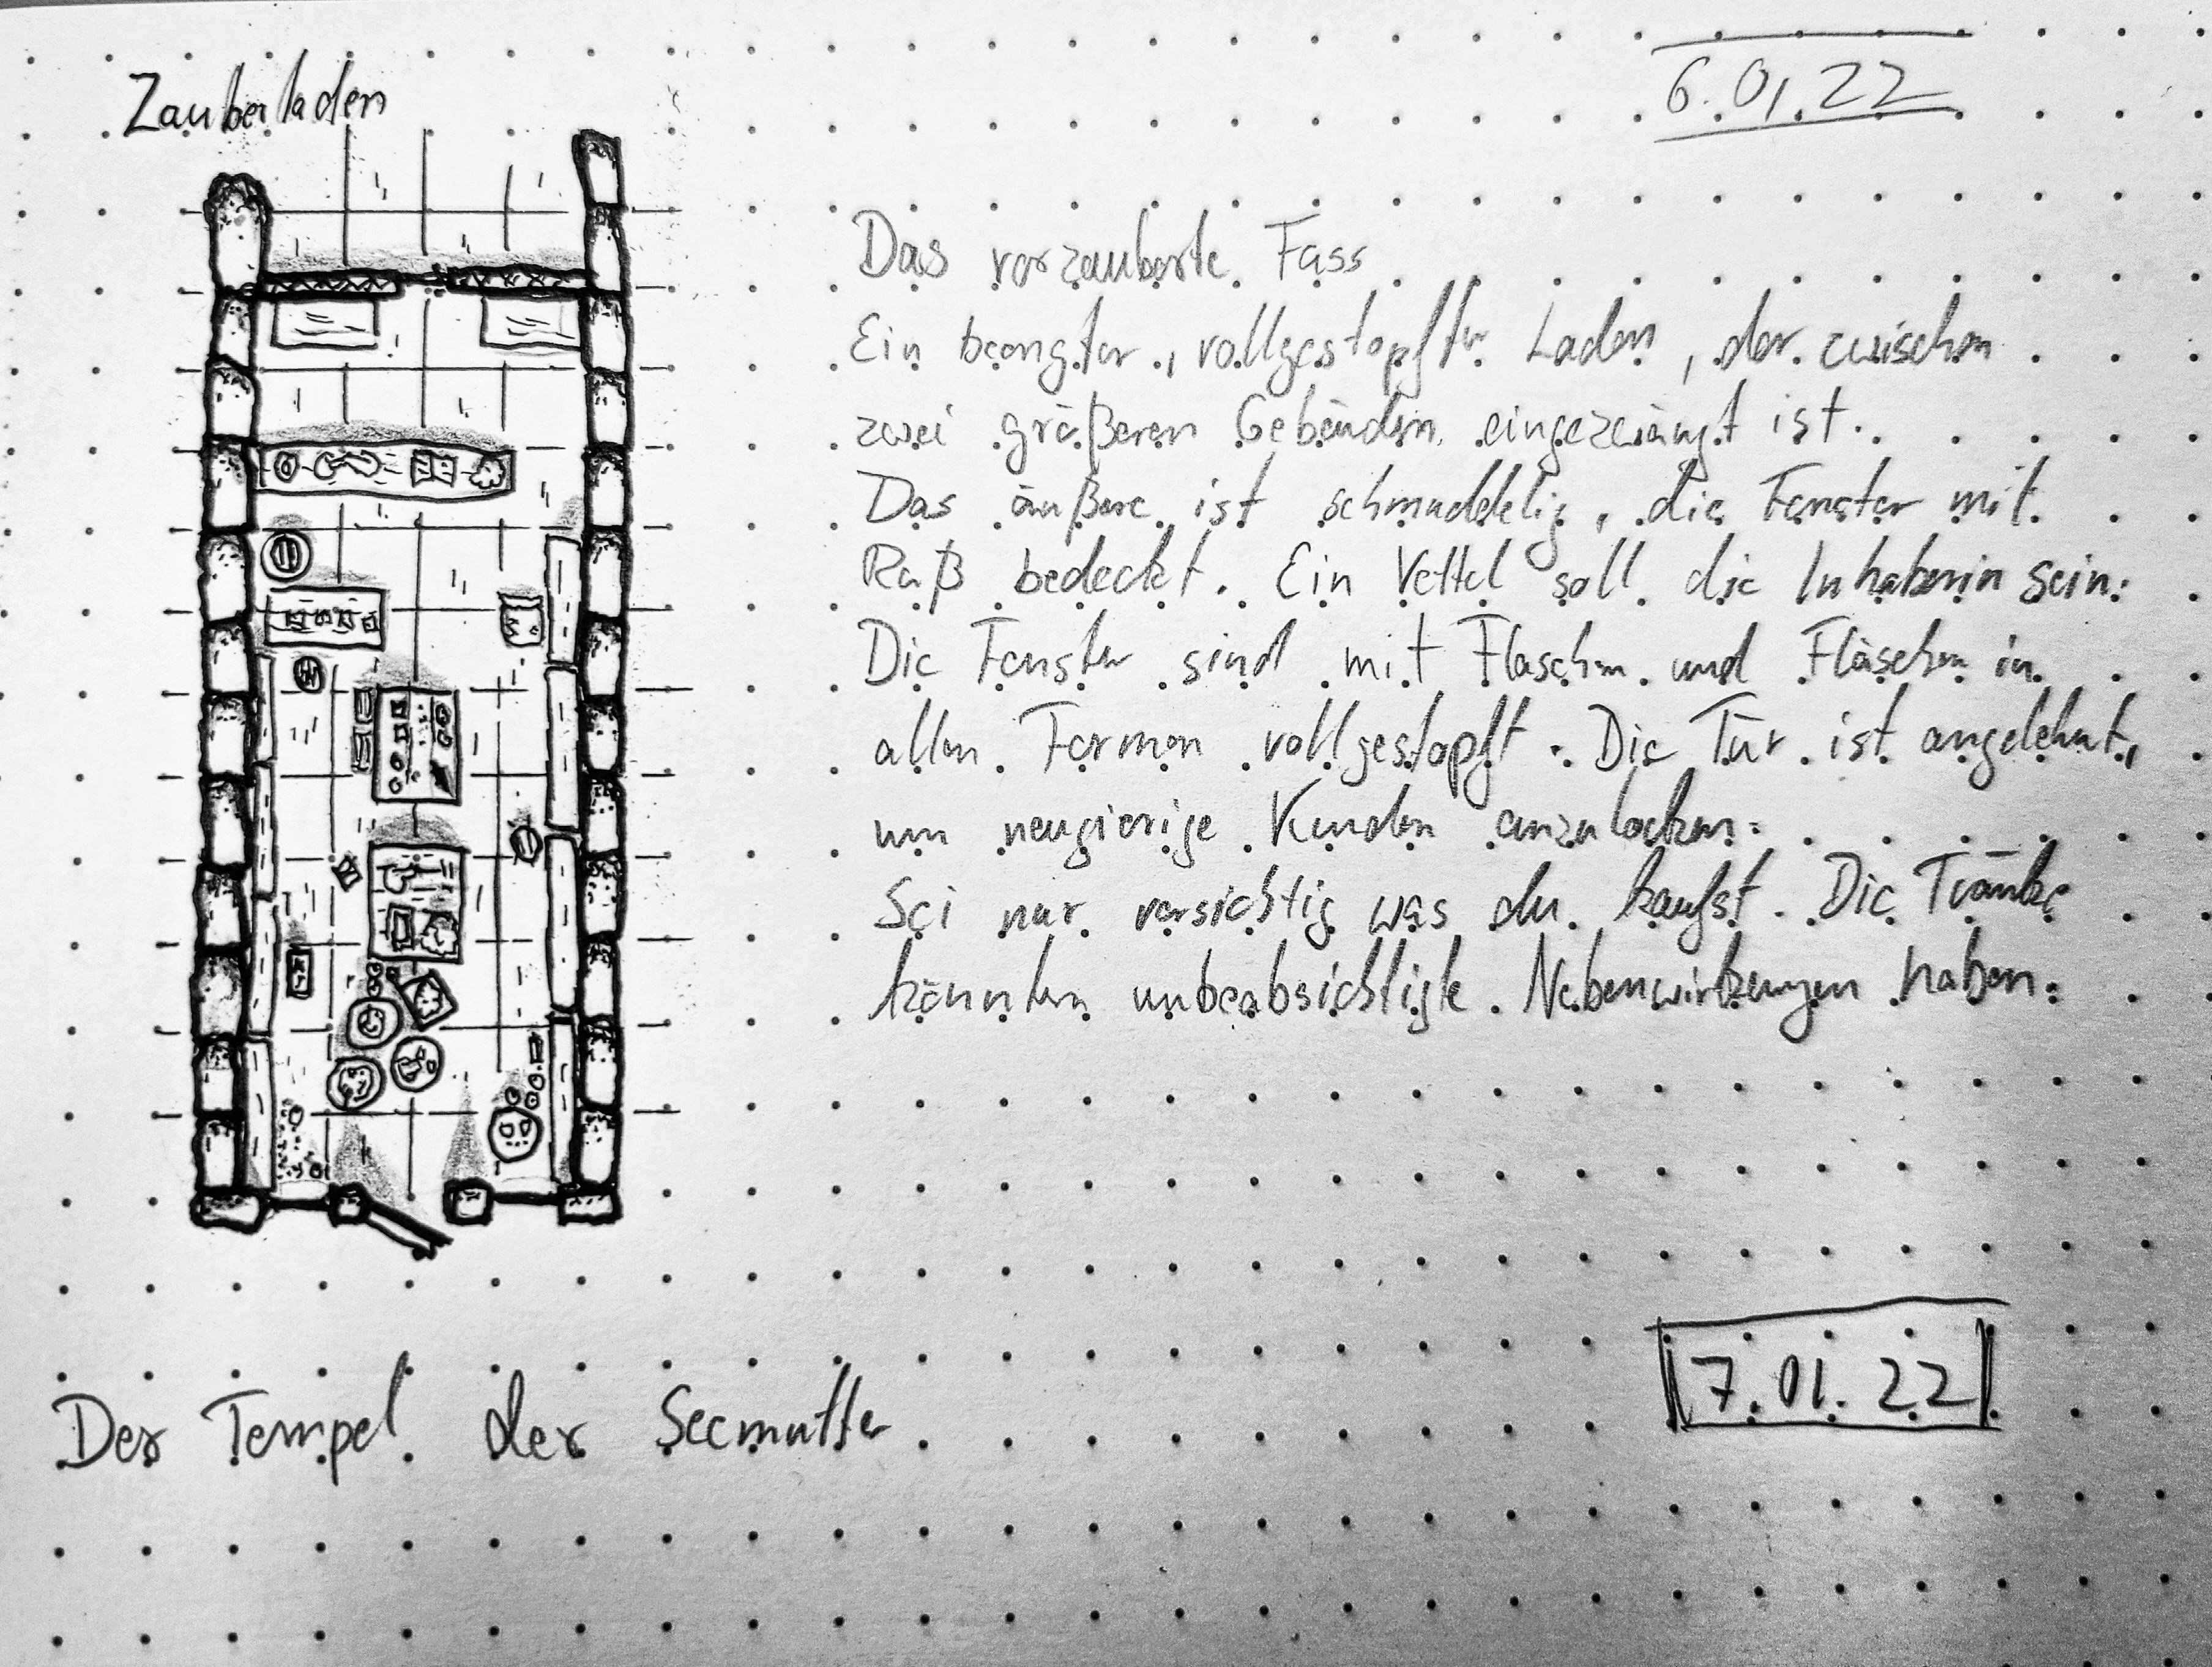 Zauberladen
6.01.22
Das verzauberte Fass
Ein beengter, vollgestopfter Laden, der zwischen
zwei größeren Gebäuden eingezwängt ist.
Das äußere ist schmuddelig, die Fenster mit
Ruß bedeckt. Ein Vettel soll die Inhaberin sein.
Die Fenster sind mit Flaschen und Fläschen in
allen Formen vollgestopft. Die Tür ist angelehnt,
um neugierige Kunden anzulocken.
Sei nur vorsichtig was du kaufst. Die Tränke
könnten unbeabsichtigte Nebenwirkungen haben.
7.01.22
Der Tempel der Seemutter